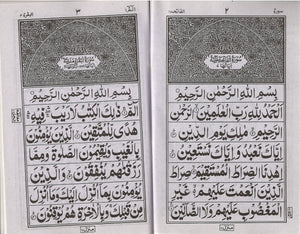 سورة
٢
الفاتحة
بِسْمِ اللهِ الرَّحْمٰنِ الرَّحِيْمِ
اَلْحَمْدُ لِلّٰهِ رَبِّ الْعٰلَمِيْنَ الرَّحْمٰنِ
الرَّحِيْمِ مٰلِكِ يَوْمِ الدِّيْنِ
اِيَّاكَ نَعْبُدُ وَاِيَّاكَ نَسْتَعِيْنُ
اِهْدِنَا الصِّرَاطَ الْمُسْتَقِيْمَ
صِرَاطَ الَّذِيْنَ اَنْعَمْتَ عَلَيْهِمْ غَيْرِ
الْمَغْضُوْبِ عَلَيْهِمْ وَلَا الضَّآلِّيْنَ
منزل
الٓمّٓ
٣
البقرة
بِسْمِ اللهِ الرَّحْمٰنِ الرَّحِيْمِ
الٓمّٓ ذٰلِكَ الْكِتٰبُ لَا رَيْبَ فِيْهِ
هُدًى لِّلْمُتَّقِيْنَ الَّذِيْنَ يُؤْمِنُوْنَ
بِالْغَيْبِ وَيُقِيْمُوْنَ الصَّلٰوةَ وَمِمَّا
رَزَقْنٰهُمْ يُنْفِقُوْنَ وَالَّذِيْنَ
يُؤْمِنُوْنَ بِمَآ اُنْزِلَ اِلَيْكَ وَمَآ اُنْزِلَ
مِنْ قَبْلِكَ وَبِالْاٰخِرَةِ هُمْ يُوْقِنُوْنَ
منزل